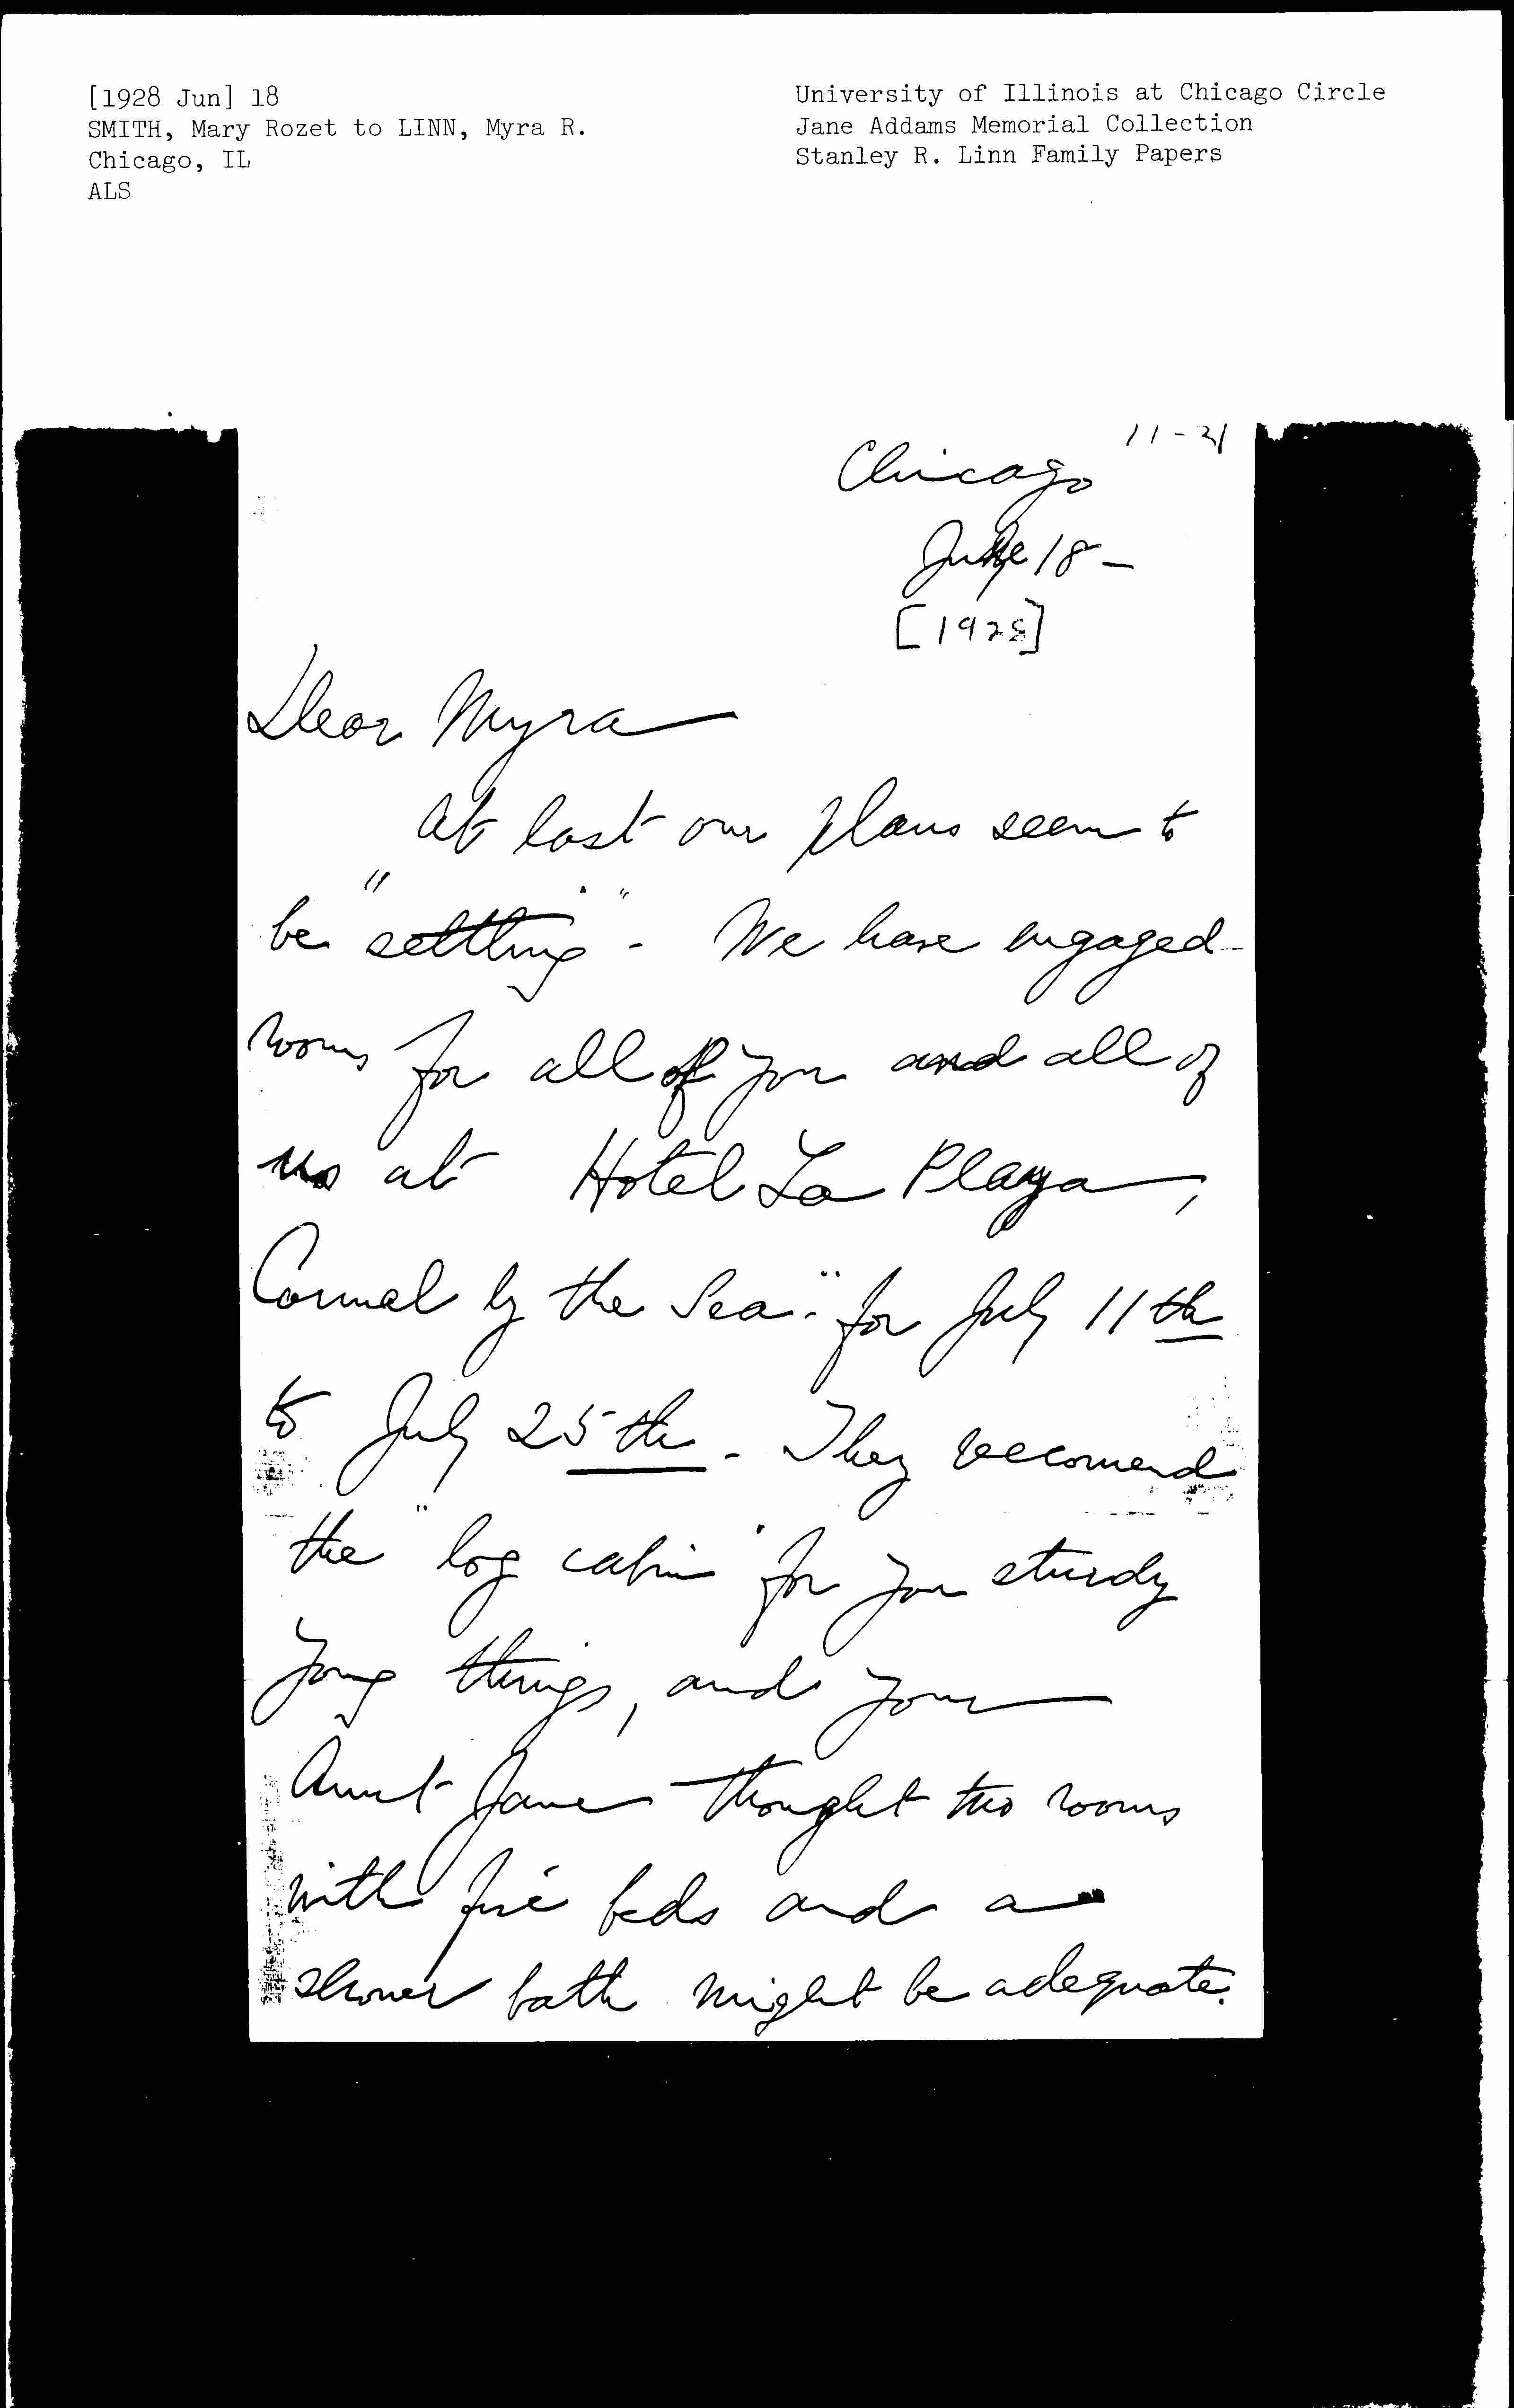 [1928 Jun] 18
SMITH, Mary Rozet to LINN, Myra R.
Chicago, IL
ALS
University of Illinois at Chicago Circle
Jane Addams Memorial Collection
Stanley R. Linn Family Papers
11-21
Chicago
June 18 -
[1928]
Dear Myra
At last our plans seem to
be "settling" - We have engaged
rooms for all of you and all of
us at Hotel La Playa,
Carmel by the Sea - for July 11th
to July 25th - They recomend
the "log cabin" for you sturdy
young things, and your
Aunt Jane thought two rooms
with five beds and a
shower bath might be adequate.